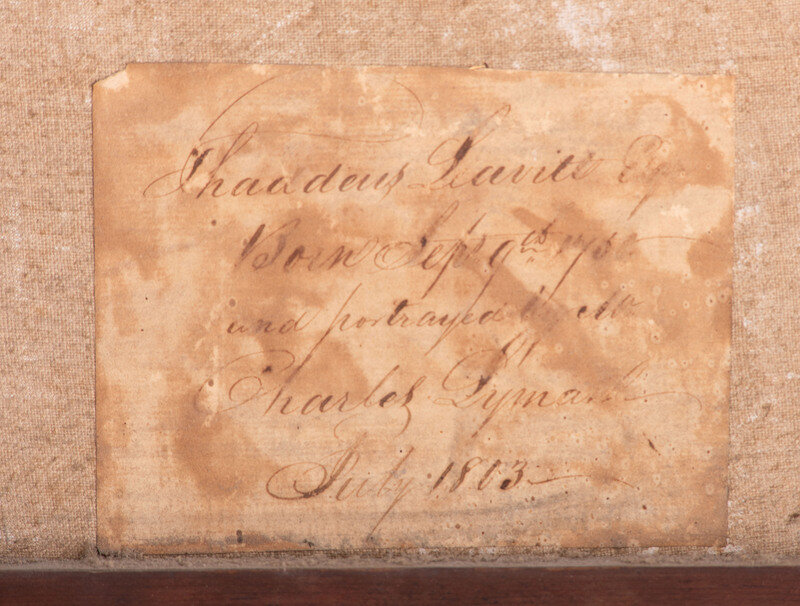 Thaddeus Leavitt Esqr
Born Sept 9th 1750
and portrayed by Mr
Charles Lyman
July 1803